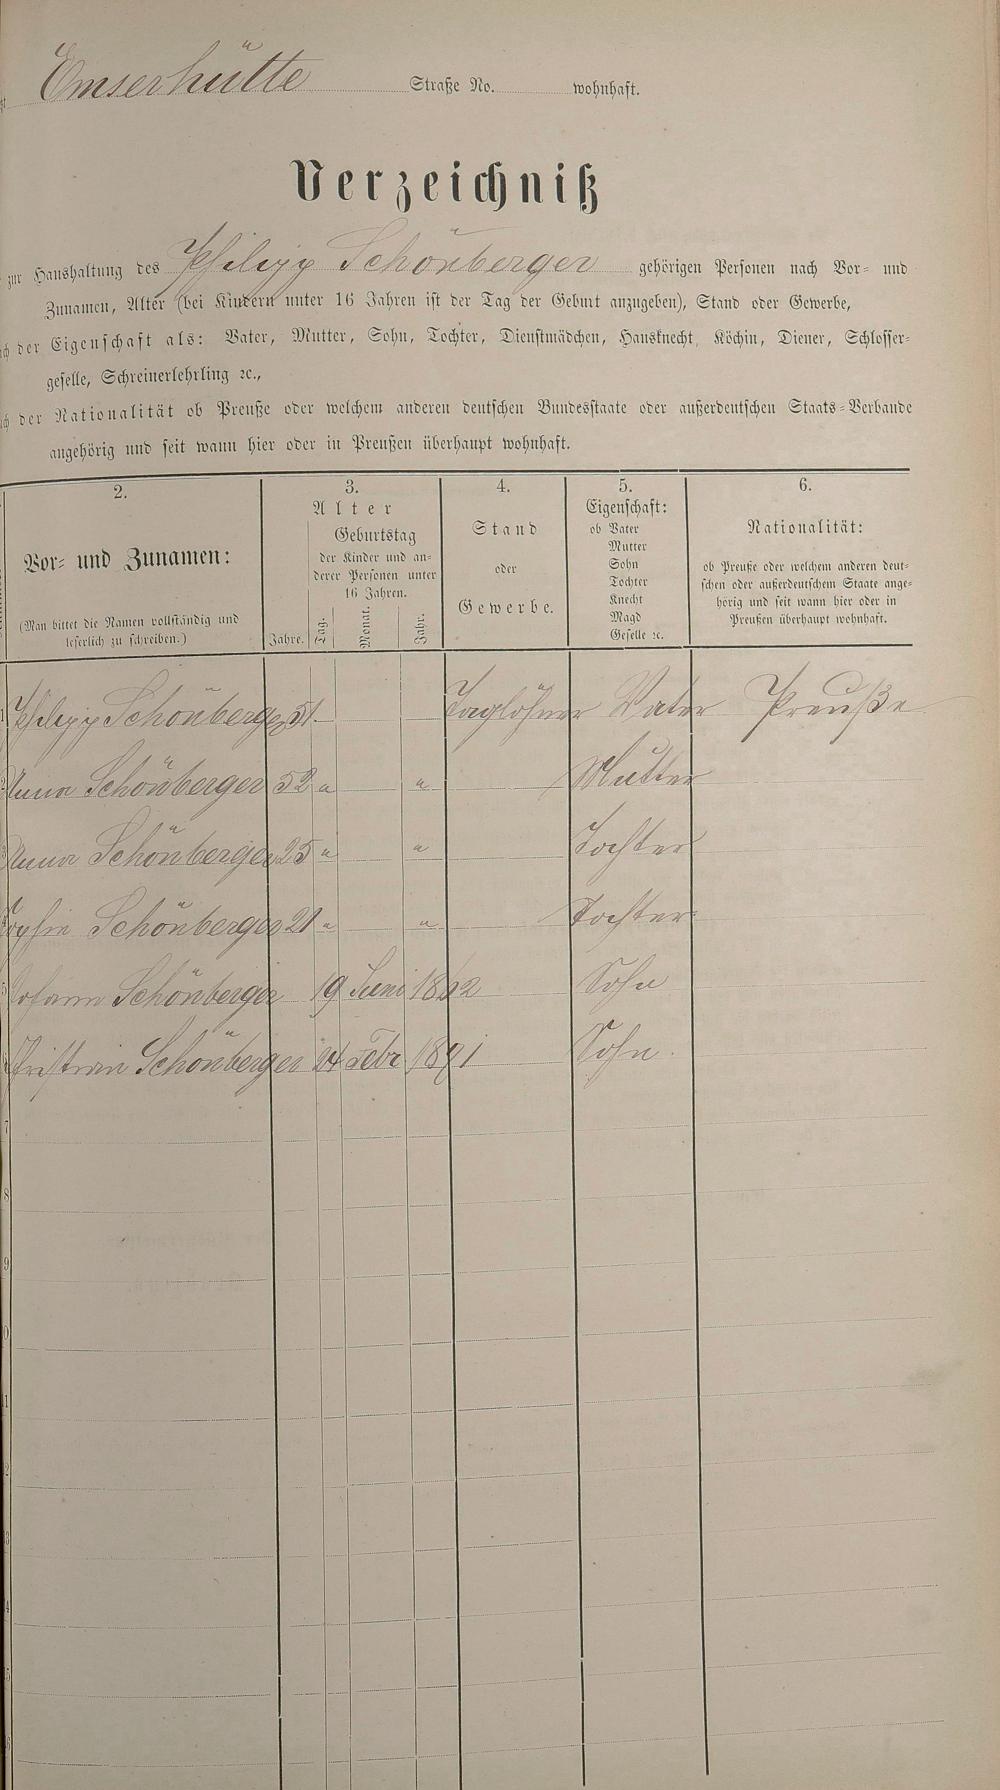 Emserhütte Straße No. wohnhaft.
Verzeichniß
zur Haushaltung des Philipp Schönberger gehörigen Personen nach Vor- und
Zunamen, Alter (bei Kindern unter 16 Jahren ist der Tag der Geburt anzugeben), Stand oder Gewerbe,
der Eigenschaft als: Vater, Mutter, Sohn, Tochter, Dienstmädchen, Hausknecht, Köchin, Diener, Schlosser-
geselle, Schreinerlehrling ꝛc.,
der Nationalität ob Preuße oder welchem anderen deutschen Bundesstaate oder außerdeutschen Staats-Verbande
angehörig und seit wann hier oder in Preußen überhaupt wohnhaft.
2. 3. 4. 5. 6.
Vor- und Zunamen:
(Man bittet die Namen vollständig und
leserlich zu schreiben.)
Alter
Jahre.
Geburtstag
der Kinder und an-
derer Personen unter
16 Jahren.
Tag. Monat. Jahr.
Stand
oder
Gewerbe.
Eigenschaft:
ob Vater
Mutter
Sohn
Tochter
Knecht
Magd
Geselle ꝛc.
Nationalität:
ob Preuße oder welchem anderen deut-
schen oder außerdeutschem Staate ange-
hörig und seit wann hier oder in
Preußen überhaupt wohnhaft.
1 Philipp Schönberger 51. Taglöhner Vater Preuße
Anna Schönberger 52 " " Mutter
Anna Schönberger 25 " " Tochter
Sophie Schönberger 21 " " Tochter
5 Johann Schönberger 19 Juni Sohn
Christian Schönberger 24 Febr Sohn.
7
8
9